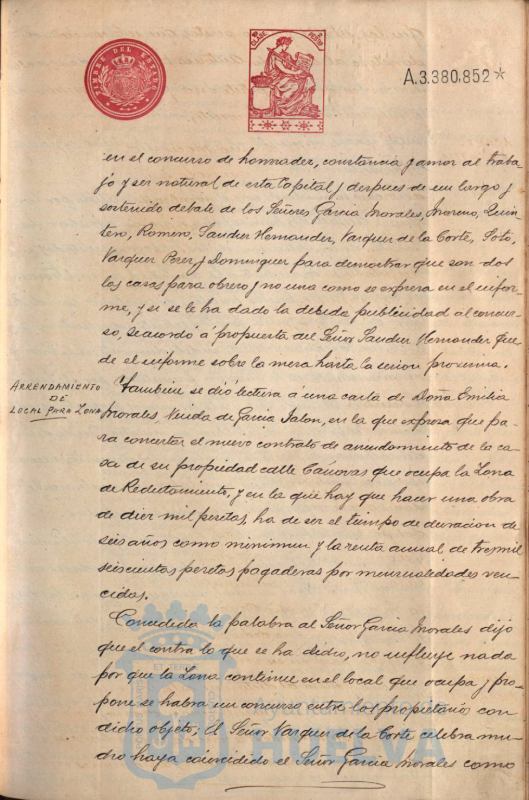 TIMBRE DEL ESTADO
CLASE
A.3.380.852*
en el concurso de honradez, constancia y amor al traba-
jo y ser natural de esta Capital y despues de un largo y
sostenido debate de los Señores Garcia Morales, Moreno, Quin-
tero, Romero, Sanchez Hernandez, Vazquez de la Corte, Soto,
Vazquez Perez y Dominguez para demostrar que son dos
las casas para obrero y no una como se expresa en el infor-
me, y si se le ha dado la debida publicidad al concur-
so, se acordó á propuesta del Señor Sanchez Hernandez que-
de el informe sobre la mesa hasta la sesion proxima.
ARRENDAMIENTO
DE
LOCAL PARA ZONA
Tambien se dió lectura á una carta de Doña Emilia
Morales, Viuda de Garcia Jalon, en la que expresa que pa-
ra concertar el nuevo contrato de arrendamiento de la ca-
sa de su propiedad calle Cánovas que ocupa la Zona
de Reclutamiento, y en la que hay que hacer una obra
de diez mil pesetas, ha de ser el tiempo de duracion de
seis años como minimun y la renta anual de tres mil
seiscientas pesetas pagaderas por mensualidades ven-
cidas.
Concedida la palabra al Señor Garcia Morales dijo
que el contra lo que se ha dicho, no influye nada
por que la Zona continue en el local que ocupa y pro-
pone se habra un concurso entre los propietarios con
dicho objeto; El Señor Vazquez de la Corte celebra mu-
cho haya coincidido el Señor Garcia Morales como
Ayuntamiento
HUELVA